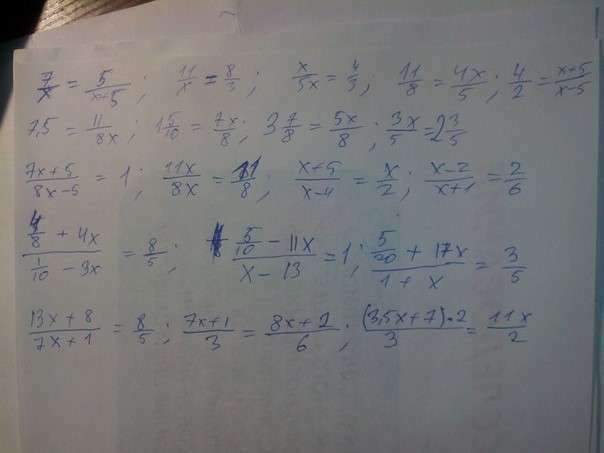 7/x = 5/(x+5); 11/x = 8/3; x/5x = 4/3; 11/8 = 4x/5; 4/2 = (x+5)/(x-5)
7,5 = 11/8x; 1 5/10 = 7x/8; 3 7/8 = 5x/8; 3x/5 = 2 3/5
(7x+5)/(8x-5) = 1; 11x/8x = 11/8; (x+5)/(x-4) = x/2; (x-2)/(x+1) = 2/6
(4/8 + 4x)/(1/10 - 3x) = 8/5; (5/10 - 11x)/(x-13) = 1; (5/20 + 17x)/(1+x) = 3/5
(13x+8)/(7x+1) = 8/5; (7x+1)/3 = (8x+2)/6; ((3,5x+7)·2)/3 = 11x/2